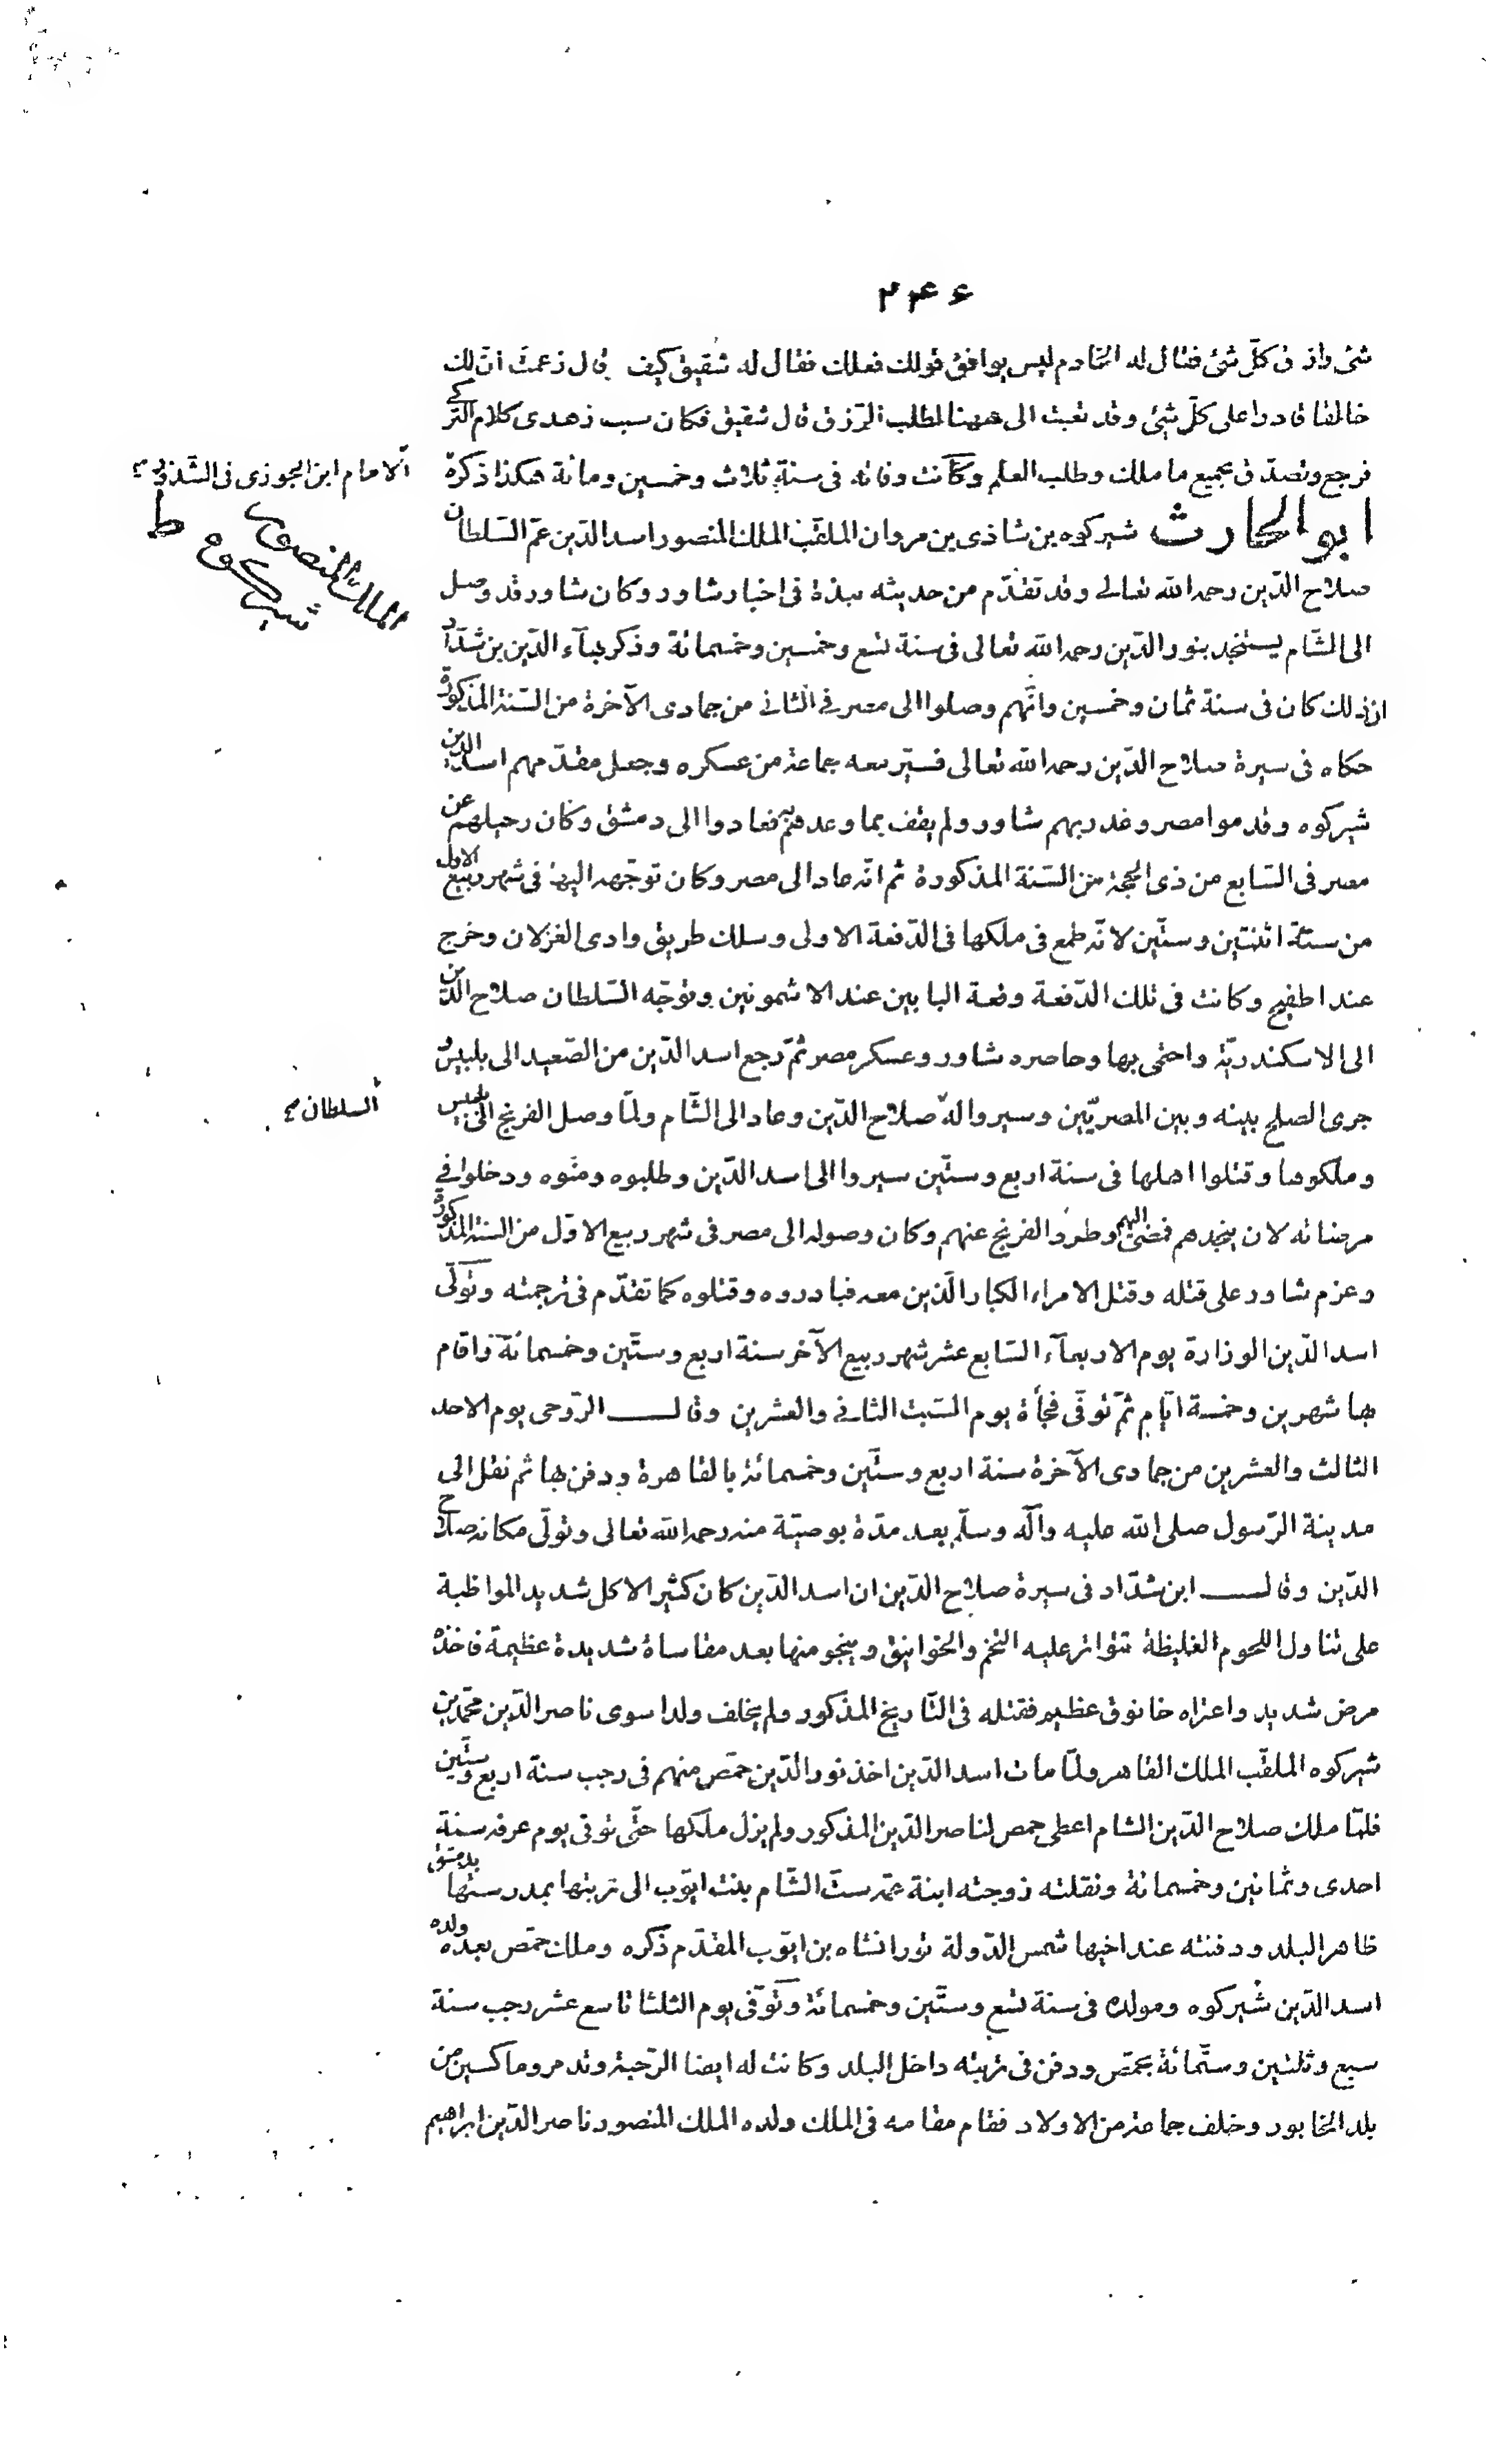 ٢٣٤
شئ وارزق كلّ شئ فقال له الخادم ليس يوافق قولك فعلك فقال له شقيق كيف قال زعمت انّ لك
خالقا قادرا على كلّ شئ وقد تعبت الى ههنا لطلب الرّزق قال شقيق فكان سبب زهدى كلام التركى
فرجع وتصدّق بجميع ما ملك وطلب العلم وكانت وفاته فى سنة ثلاث وخمسين ومائة هكذا ذكره
الامام ابن الجوزى فى الشّذور
ابو الحارث شيركوه بن شاذى بن مروان الملقّب الملك المنصور اسد الدّين عمّ السّلطان
الملك المنصور شيركوه
صلاح الدّين رحمه الله تعالى وقد تقدّم من حديثه نبذة فى اخبار شاور وكان شاور قد وصل
الى الشّام يستنجد بنور الدّين رحمه الله تعالى فى سنة تسع وخمسين وخمسمائة وذكر بهآء الدّين بن شدّاد
انّ ذلك كان فى سنة ثمان وخمسين وانّهم وصلوا الى مصر فى الثانى من جمادى الآخرة من السّنة المذكورة
حكاه فى سيرة صلاح الدّين رحمه الله تعالى فسيّر معه جماعة من عسكره وجعل مقدّمهم اسد الدين
شيركوه وقدموا مصر وغدر بهم شاور ولم يقف بما وعدهم به فعادوا الى دمشق وكان رحيلهم عن
مصر فى السّابع من ذى الحجة من السّنة المذكورة ثم انّه عاد الى مصر وكان توجّهه اليها فى شهر ربيع الاول
من سنة اثنتين وستّين لانّه طمع فى ملكها فى الدّفعة الاولى وسلك طريق وادى الغزلان وخرج
عند اطفيح وكانت فى تلك الدّفعة وقعة البابين عند الاشمونين وتوجّه السّلطان صلاح الدّين
الى الاسكندريّة واحتمى بها وحاصره شاور وعسكر مصر ثمّ رجع اسد الدّين من الصّعيد الى بلبيس و
جرى الصلح بينه وبين المصريّين وسيروا له صلاح الدّين وعاد الى الشّام ولمّا وصل الفرنج الى بلبيس
السلطان
وملكوها وقتلوا اهلها فى سنة اربع وستّين سيروا الى اسد الدّين وطلبوه ومنّوه ودخلوا فى
مرضاته لان ينجدهم فمضى اليهم وطرد الفرنج عنهم وكان وصوله الى مصر فى شهر ربيع الاوّل من السنة المذكورة
وعزم شاور على قتله وقتل الامراء الكبار الّذين معه فبادروه وقتلوه كما تقدّم فى ترجمته وتولّى
اسد الدّين الوزارة يوم الاربعآء السّابع عشر شهر ربيع الآخر سنة اربع وستّين وخمسمائة واقام
بها شهرين وخمسة ايّام ثمّ توفّى فجأة يوم السّبت الثانى والعشرين وقال الرّوحى يوم الاحد
الثالث والعشرين من جمادى الآخرة سنة اربع وستّين وخمسمائة بالقاهرة ودفن بها ثم نقل الى
مدينة الرّسول صلى الله عليه وآله وسلّم بعد مدّة بوصيّة منه رحمه الله تعالى وتولّى مكانه صلاح
الدّين وقال ابن شدّاد فى سيرة صلاح الدّين ان اسد الدّين كان كثير الاكل شديد المواظبة
على تناول اللحوم الغليظة تتواتر عليه التخم والخوانيق وينجو منها بعد مقاساة شديدة عظيمة فاخذه
مرض شديد واعتراه خانوق عظيم فقتله فى التّاريخ المذكور ولم يخلف ولدا سوى ناصر الدّين محمّد بن
شيركوه الملقّب الملك القاهر ولمّا مات اسد الدّين اخذ نور الدّين حمص منهم فى رجب سنة اربع وستّين
فلمّا ملك صلاح الدّين الشام اعطى حمص لناصر الدّين المذكور ولم يزل ملكها حتّى توفى يوم عرفه سنة
احدى وثمانين وخمسمائة ونقلته زوجته ابنة عمّه ستّ الشّام بنت ايّوب الى تربتها بمدرستها بدمشق
ظاهر البلد ودفنته عند اخيها شمس الدّولة تورانشاه بن ايّوب المقدّم ذكره وملك حمص بعده ولده
اسد الدّين شيركوه ومولده فى سنة تسع وستّين وخمسمائة وتوفّى يوم الثلثا تاسع عشر رجب سنة
سبع وثلثين وستّمائة بحمص ودفن فى تربته داخل البلد وكانت له ايضا الرّحبة وتدمر وماكسين من
بلد الخابور وخلف جماعة من الاولاد فقام مقامه فى الملك ولده الملك المنصور ناصر الدّين ابراهيم